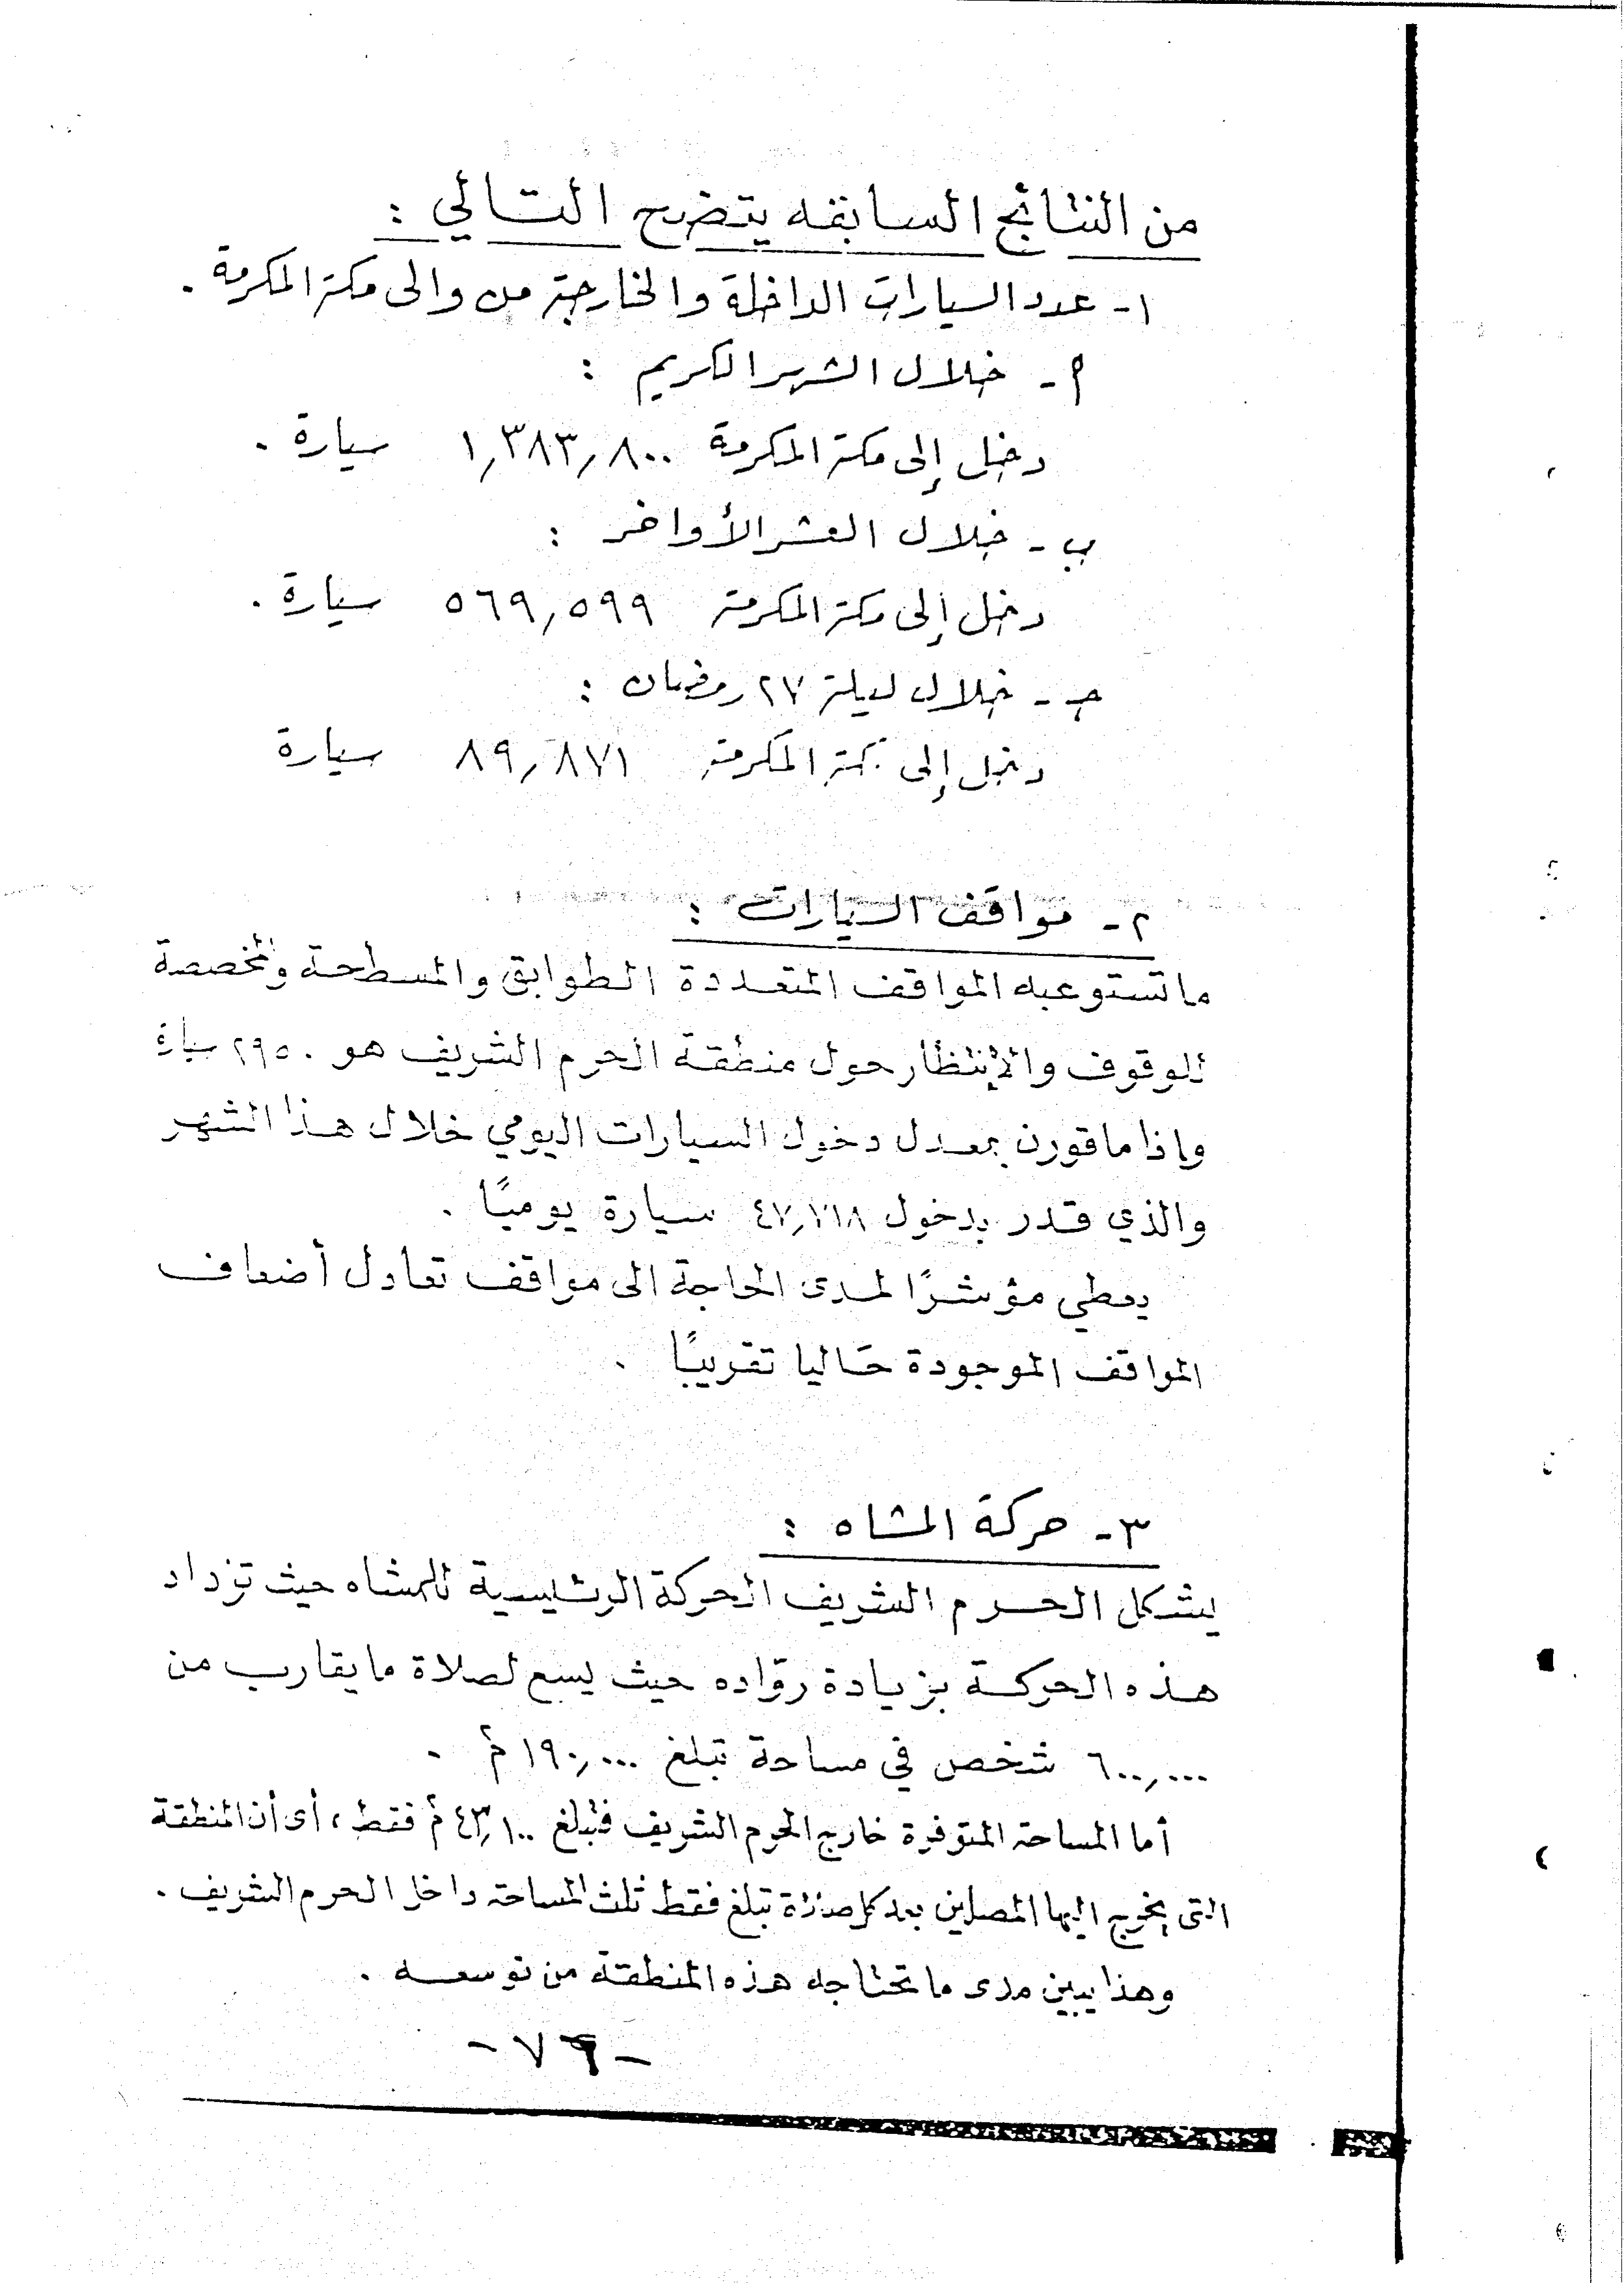 من النتائج السابقه يتضح التالي :
١- عدد السيارات الداخلة والخارجة من والى مكة المكرمة .
أ - خلال الشهر الكريم :
دخل إلى مكة المكرمة ١,٣٨٣,٨٠٠ سيارة .
ب - خلال العشر الأواخر :
دخل إلى مكة المكرمة ٥٦٩,٥٩٩ سيارة .
جـ - خلال ليلة ٢٧ رمضان :
دخل إلى مكة المكرمة ٨٩,٨٧١ سيارة
٢- مواقف السيارات :
ما تستوعبه المواقف المتعددة الطوابق والمسطحة والمخصصة
للوقوف والانتظار حول منطقة الحرم الشريف هو ٢٩٥٠ سيارة
وإذا ما قورن بمعدل دخول السيارات اليومي خلال هذا الشهر
والذي قدر بدخول سيارة يوميًا .
يعطي مؤشرًا لمدى الحاجة الى مواقف تعادل أضعاف
المواقف الموجودة حاليا تقريبًا .
٣- حركة المشاه :
يشكل الحرم الشريف الحركة الرئيسية للمشاه حيث تزداد
هذه الحركة بزيادة روّاده حيث يسع لصلاة ما يقارب من
٦٠٠,٠٠٠ شخص في مساحة تبلغ ١٩٠,٠٠٠ م٢ .
أما المساحة المتوفرة خارج الحرم الشريف فتبلغ ٤٣,١٠٠ م٢ فقط ، أى أن المنطقة
التى يخرج اليها المصلين بعد كل صلاة تبلغ فقط ثلث المساحة داخل الحرم الشريف .
وهذا يبين مدى ما تحتاجه هذه المنطقة من توسعه .
- ٧٩ -